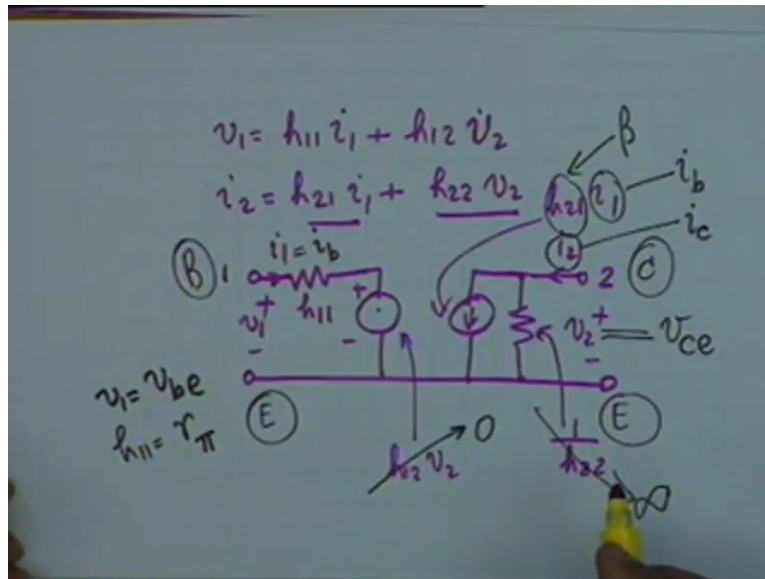 β
v₁ = h₁₁ i₁ + h₁₂ v₂
i₂ = h₂₁ i₁ + h₂₂ v₂
h₂₁ i₁
i_b
i₂
i_c
B 1
i₁ = i_b
h₁₁
+
v₁
-
+
-
2 C
v₂ = v_ce
+
-
v₁ = v_be
h₁₁ = r_π
E
h₁₂ v₂
0
1/h₂₂
∞
E